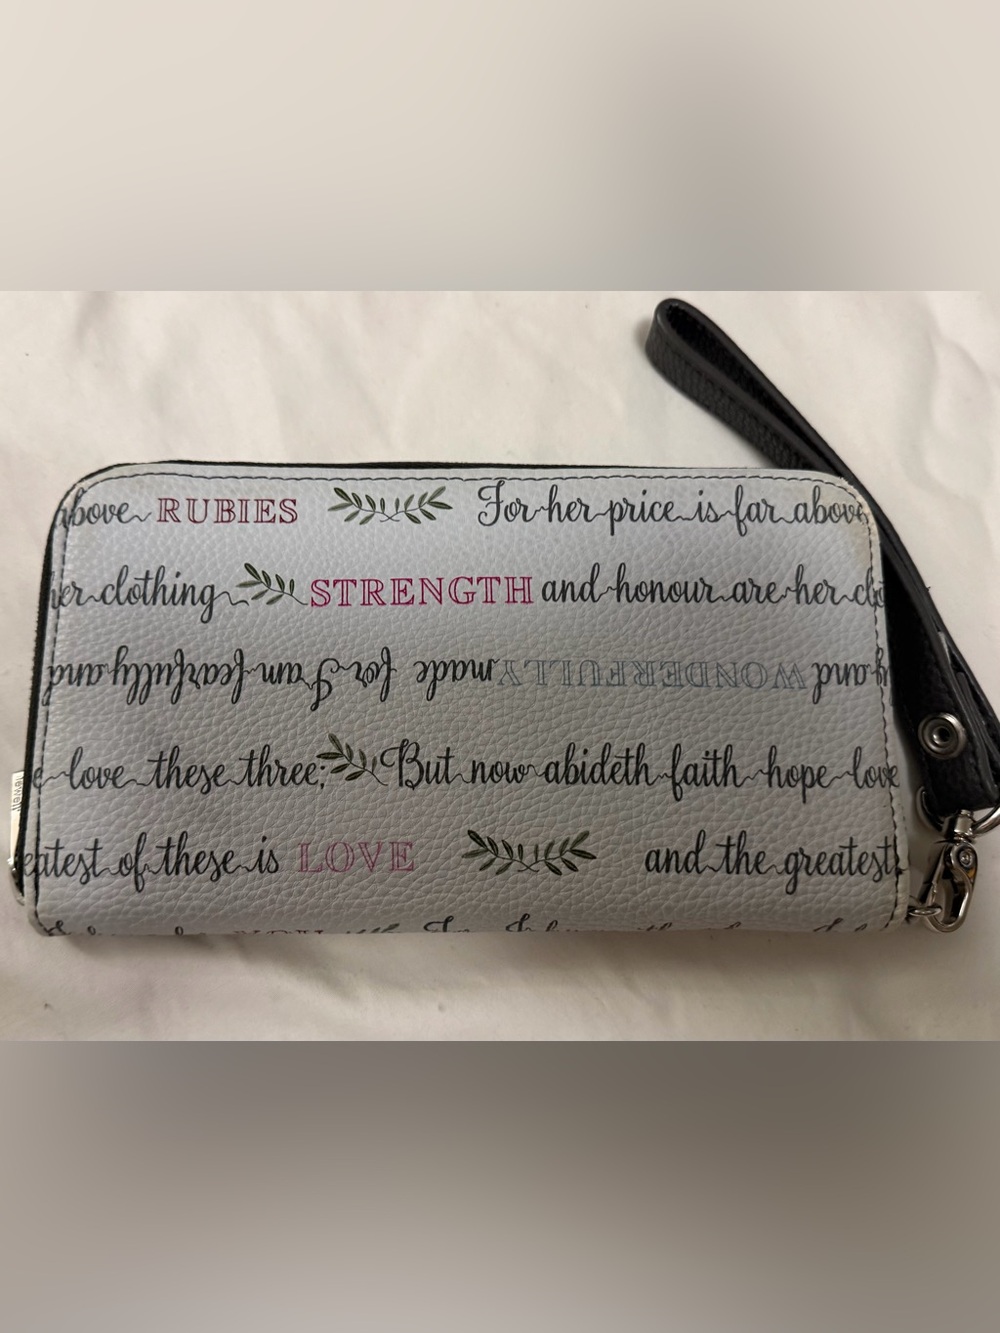 above RUBIES For her price is far above
her clothing STRENGTH and honour are her clo
and WONDERFULLY made for I am fearfully and
love these three; But now abideth faith hope love
eatest of these is LOVE and the greatest
YOU For I know the